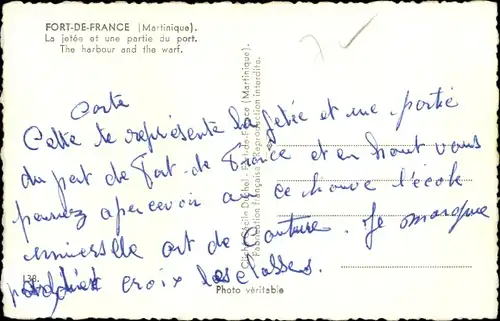 FORT-DE-FRANCE (Martinique).
La jetée et une partie du port.
The harbour and the warf.
Carte
Cette te représente la jetée et une partie
du port de Fort-de France et en haut vous
pouvez apercevoir ou ce trouve l'école
universelle art de Couture. Je marque
croix les classes.
138.
Photo véritable
Fabrication Française - Reproduction interdite.